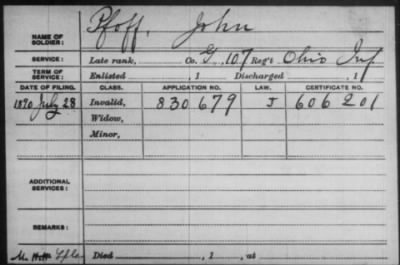 NAME OF SOLDIER: Pfoff, John
SERVICE: Late rank, Co. G, 107 Reg't Ohio Inf
TERM OF SERVICE: Enlisted , 1 Discharged , 1
DATE OF FILING. CLASS. APPLICATION NO. LAW. CERTIFICATE NO.
1890 July 28 Invalid, 830679 J 606201
Widow,
Minor,
ADDITIONAL SERVICES:
REMARKS:
Died , 1 , at